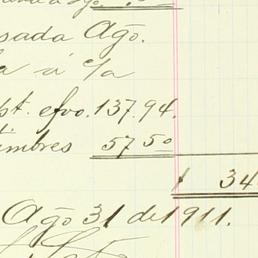 sada Ago.
a c/a
pt. efvo. 137.94.
timbres 57 50
$ 34
Ago 31 de 1911.